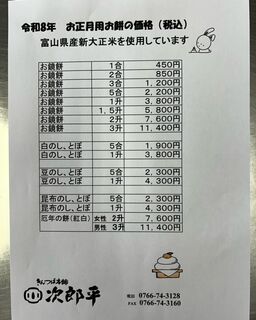 令和8年　お正月用お餅の価格（税込）
富山県産新大正米を使用しています
お鏡餅 1合 450円
お鏡餅 2合 850円
お鏡餅 3合 1,200円
お鏡餅 5合 2,200円
お鏡餅 1升 3,800円
お鏡餅 1,5升 5,800円
お鏡餅 2升 7,600円
お鏡餅 3升 11,400円
白のし、とぼ 5合 1,900円
白のし、とぼ 1升 3,800円
豆のし、とぼ 5合 2,300円
豆のし、とぼ 1升 4,300円
昆布のし、とぼ 5合 2,300円
昆布のし、とぼ 1升 4,300円
厄年の餅（紅白） 女性 2升 7,600円
男性 3升 11,400円
きんつば本舗
次郎平
電話 0766-74-3128
FAX 0766-74-3160